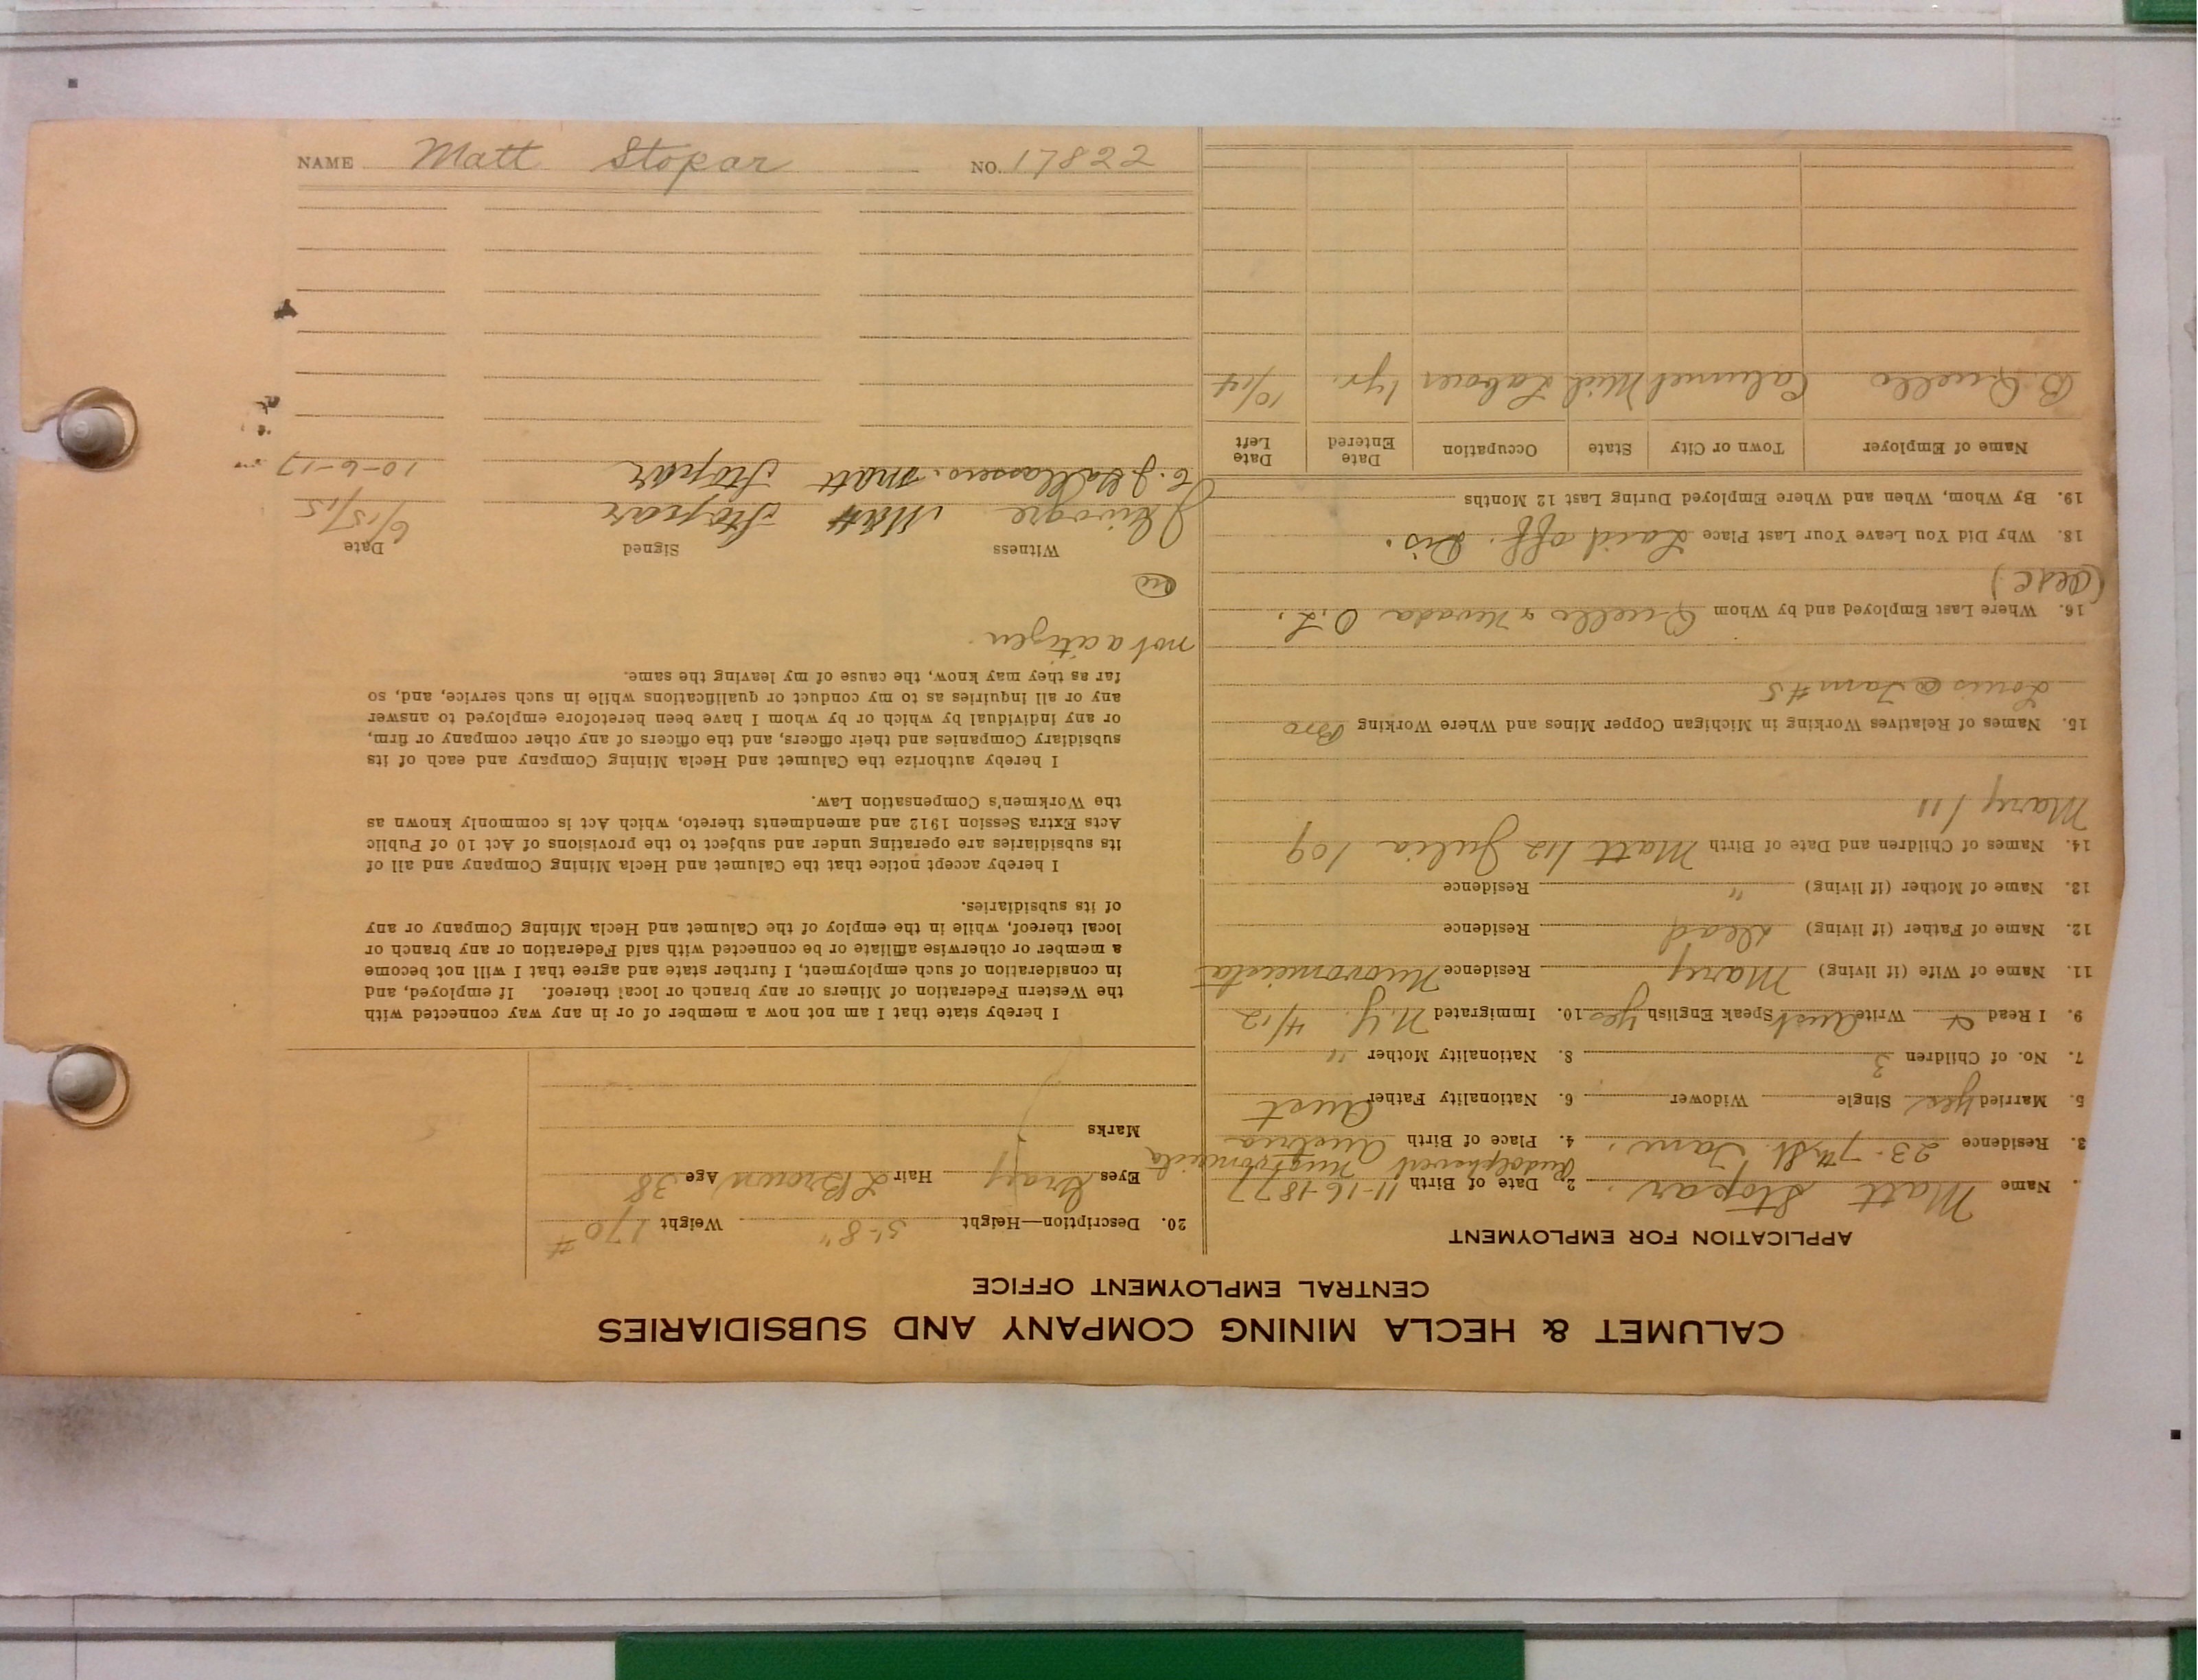 NAME Matt Stopar NO. 17822
CALUMET & HECLA MINING COMPANY AND SUBSIDIARIES
CENTRAL EMPLOYMENT OFFICE
APPLICATION FOR EMPLOYMENT
Name Matt Stopar. 2. Date of Birth 11-16-1877
3. Residence 23-7th St. Tam. 4. Place of Birth Austria
5. Married Yes Single Widower 6. Nationality Father Aust
7. No. of Children 3 8. Nationality Mother "
9. I Read & Write Aust Speak English yes 10. Immigrated N.Y. 4/12
11. Name of Wife (if living) Mary Residence
12. Name of Father (if living) Dead Residence
13. Name of Mother (if living) " Residence
14. Names of Children and Date of Birth Matt 1/12 Julia /09
Mary /11
15. Names of Relatives Working in Michigan Copper Mines and Where Working Bro
Louis @ Tam #5
16. Where Last Employed and by Whom & Nevada O.L.
18. Why Did You Leave Your Last Place Laid off. Dis.
19. By Whom, When and Where Employed During Last 12 Months
Name of Employer Town or City State Occupation Date Entered Date Left
B. Calumet Mich Laborer 1 yr. 10/14
20. Description—Height 5'-8" Weight 170 #
Eyes Gray Hair L Brown Age 38
Marks
I hereby state that I am not now a member of or in any way connected with
the Western Federation of Miners or any branch or local thereof. If employed, and
in consideration of such employment, I further state and agree that I will not become
a member or otherwise affiliate or be connected with said Federation or any branch or
local thereof, while in the employ of the Calumet and Hecla Mining Company or any
of its subsidiaries.
I hereby accept notice that the Calumet and Hecla Mining Company and all of
its subsidiaries are operating under and subject to the provisions of Act 10 of Public
Acts Extra Session 1912 and amendments thereto, which Act is commonly known as
the Workmen's Compensation Law.
I hereby authorize the Calumet and Hecla Mining Company and each of its
subsidiary Companies and their officers, and the officers of any other company or firm,
or any individual by which or by whom I have been heretofore employed to answer
any or all inquiries as to my conduct or qualifications while in such service, and, so
far as they may know, the cause of my leaving the same.
not a citizen.
Witness Signed Date
Matt Stopar 6/15/15
Matt Stopar 10-6-17